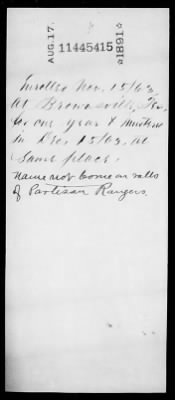 AUG. 17.
11445415
1891
Enrolled Nov. 15/63
at Brownsville, Tex.
for one year & mustered
in Dec. 15/63, at
same place.
Name not borne on rolls
of Partisan Rangers.